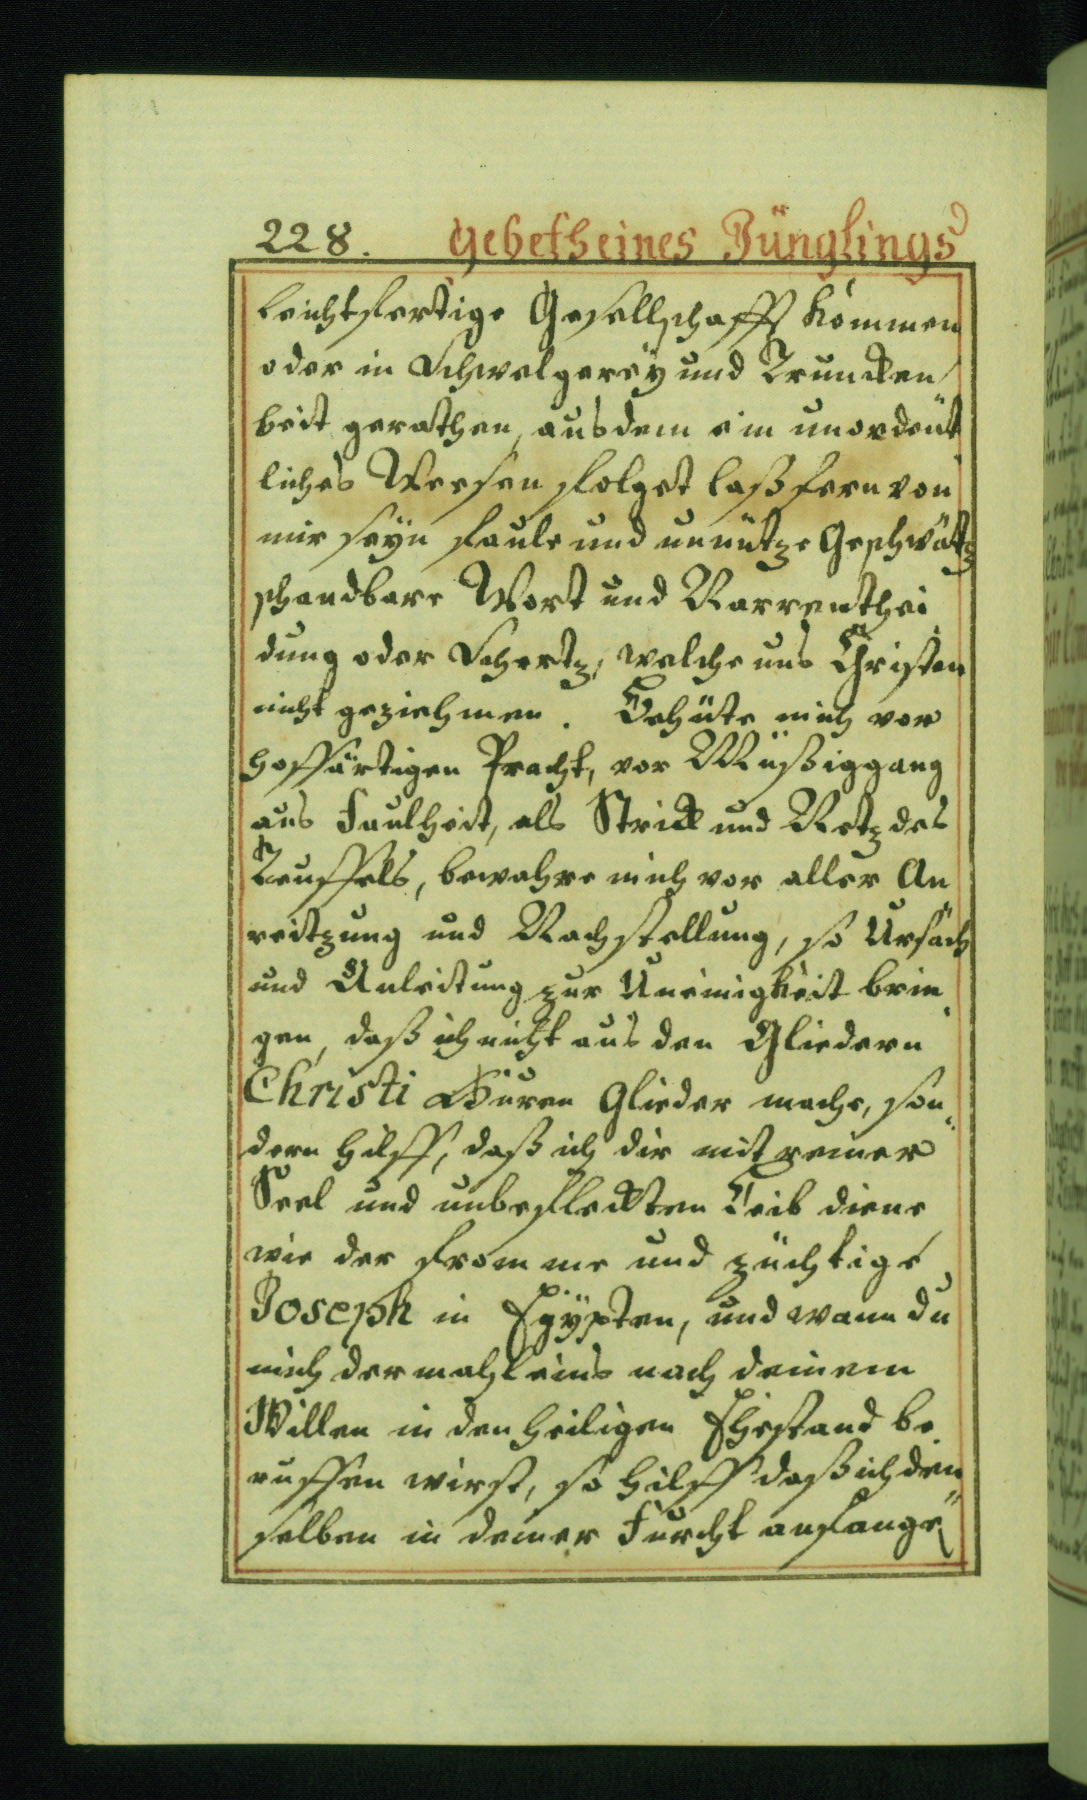 228. Gebeth eines Jünglings
leichtfertige Gesellschafft kommen
oder in Schwelgerey und Truncken
heit gerathen, aus dem ein unordent
liches Weesen folget laß fern von
mir seyn faule und unnütze Geschwätz
schandbare Wort und Narrenthei
dung oder Schertz, welche uns Christen
nicht geziehmen. Behüte mich vor
hoffärtigen Pracht, vor Müßiggang
aus Faulheit, als Strick und Netz des
Teuffels, bewahre mich vor aller An
reitzung und Nachstellung, so Ursach
und Anleitung zur Uneinigkeit brin
gen, daß ich nicht aus den Gliedern
Christi Huren Glieder mache, son„
dern hilff, daß ich dir mit reiner
Seel und unbefleckten Leib diene
wie der fromme und züchtige
Joseph in Egÿpten, und wann du
mich dermahleins nach deinem
Willen in den heiligen Ehestand be
ruffen wirst, so hilff daß ich den„
selben in deiner Furcht anfange